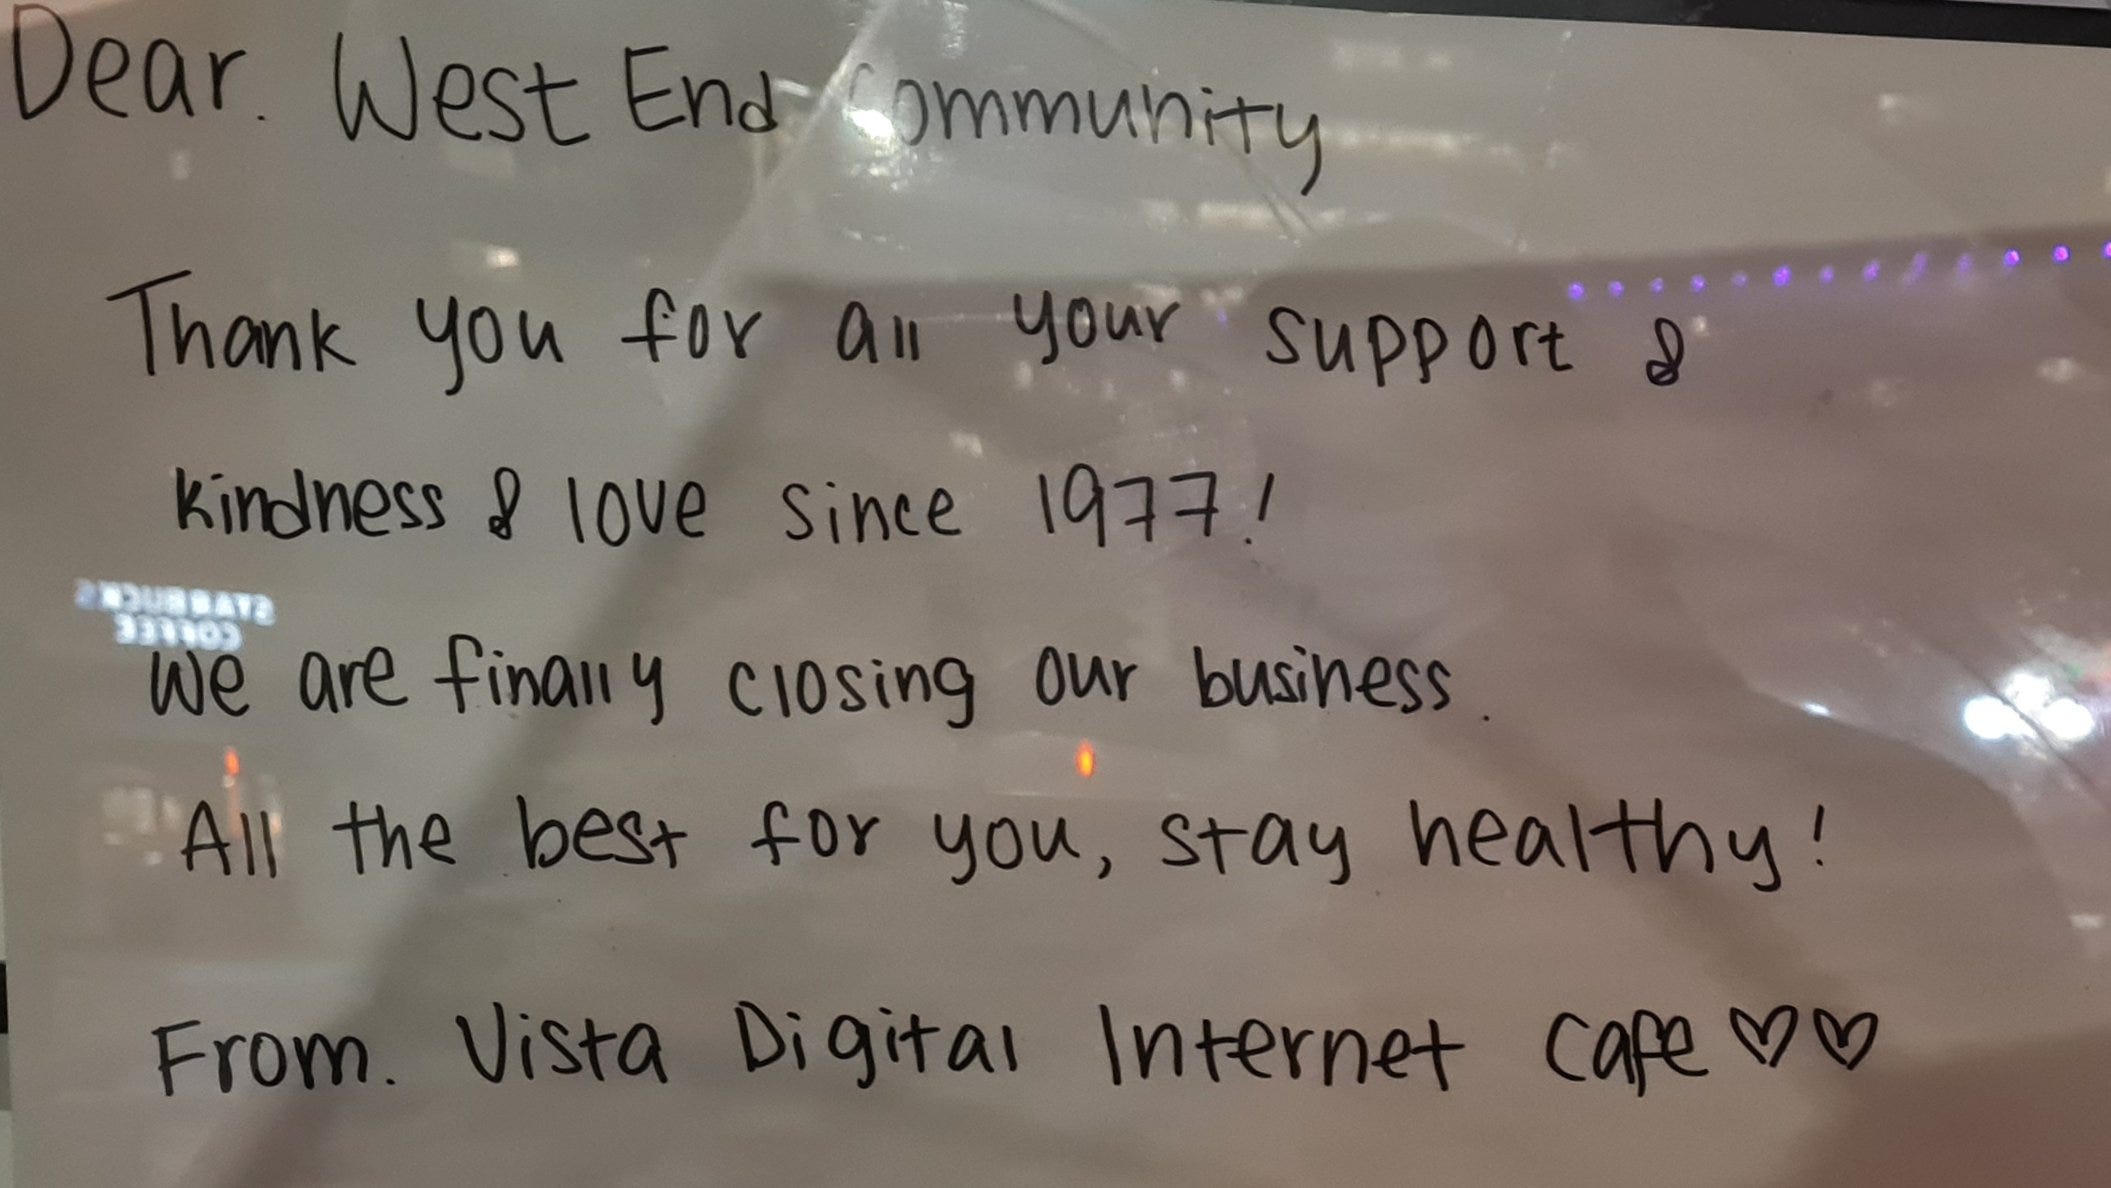 Dear. West End Community
Thank you for all your support &
kindness & love since 1977!
STARBUCKS
COFFEE
We are finally closing our business.
All the best for you, stay healthy!
From. Vista Digital Internet Cafe ♡♡